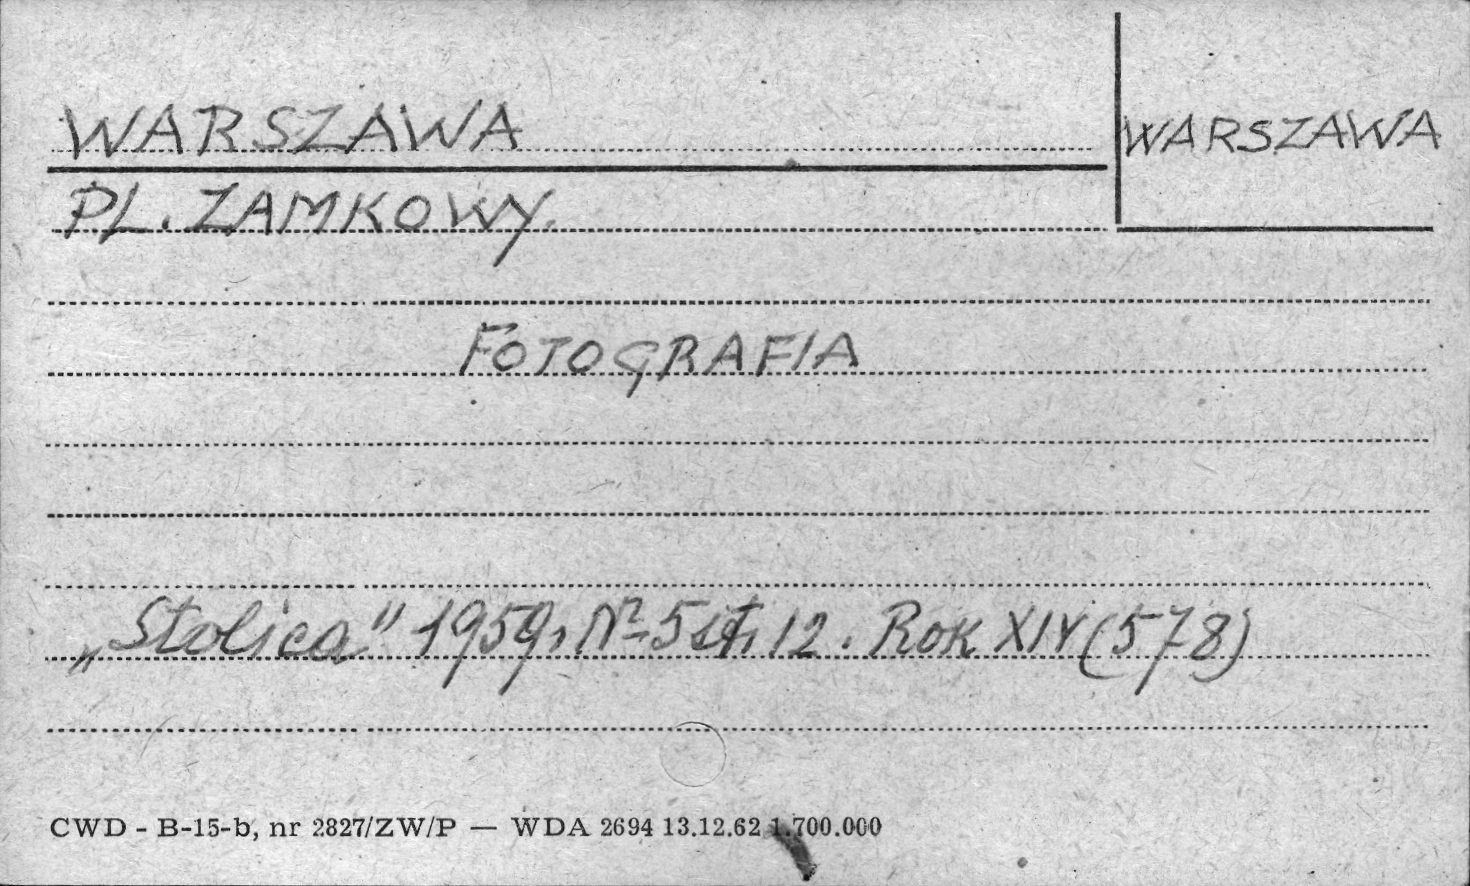 WARSZAWA
WARSZAWA
PL. ZAMKOWY.
FOTOGRAFIA
„Stolica" 1959, Nº 5 st, 12. Rok XIV (578)
CWD - B-15-b, nr 2827/ZW/P — WDA 2694 13.12.62 1.700.000